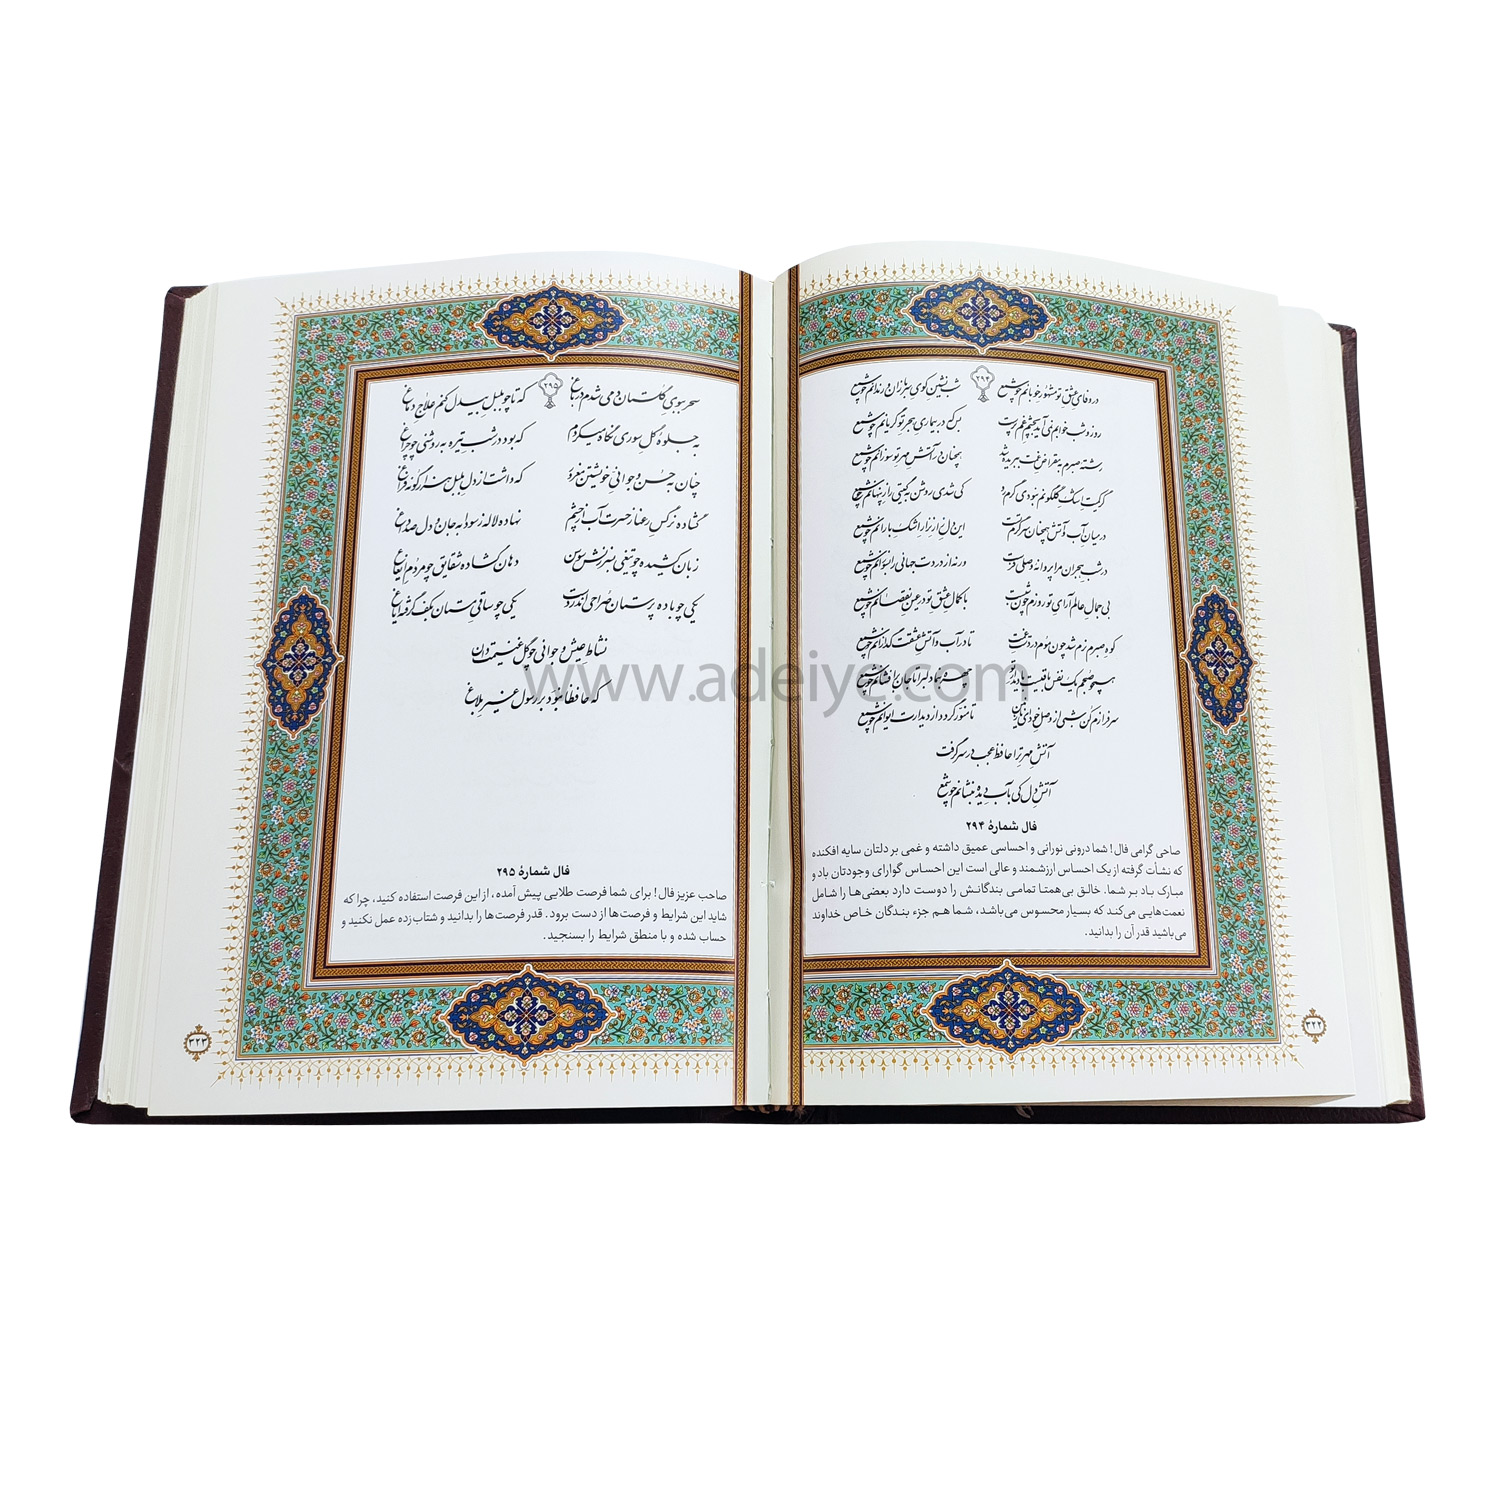 ۲۹۴
در وفای عشق تو مشهور خوبانم چو شمع
شب نشین کوی سربازان و رندانم چو شمع
روز و شب خوابم نمی آید به چشم غم پرست
بس که در بیماری هجر تو گریانم چو شمع
رشته صبرم به مقراض غمت ببریده شد
همچنان در آتش مهر تو سوزانم چو شمع
گر کمیت اشک گلگونم نبودی گرم رو
کی شدی روشن به گیتی راز پنهانم چو شمع
در میان آب و آتش همچنان سرگرم تست
این دل زار نزار اشک بارانم چو شمع
در شب هجران مرا پروانه وصلی فرست
ورنه از دردت جهانی را بسوزانم چو شمع
بی جمال عالم آرای تو روزم چون شبست
با کمال عشق تو در عین نقصانم چو شمع
کوه صبرم نرم شد چون موم در دست غمت
تا در آب و آتش عشقت گدازانم چو شمع
همچو صبحم یک نفس باقیست با دیدار تو
چهره بنما دلبرا تا جان برافشانم چو شمع
سرفرازم کن شبی از وصل خود ای نازنین
تا منور گردد از دیدارت ایوانم چو شمع
آتش مهر ترا حافظ عجب در سر گرفت
آتش دل کی به آب دیده بنشانم چو شمع
فال شمارهٔ ۲۹۴
صاحبی گرامی فال! شما درونی نورانی و احساسی عمیق داشته و غمی بر دلتان سایه افکنده
که نشأت گرفته از یک احساس ارزشمند و عالی است این احساس گوارای وجودتان باد و
مبارک باد بر شما. خالق بی‌همتا تمامی بندگانش را دوست دارد بعضی‌ها را شامل
نعمت‌هایی می‌کند که بسیار محسوس می‌باشد، شما هم جزء بندگان خاص خداوند
می‌باشید قدر آن را بدانید.
۳۲۲
۲۹۵
سحر به بوی گلستان دمی شدم در باغ
که تا چو بلبل بیدل کنم علاج دماغ
به جلوهٔ گل سوری نگاه می‌کردم
که بود در شب تیره به روشنی چو چراغ
چنان به حسن و جوانی خویشتن مغرور
که داشت از دل بلبل هزار گونه فراغ
گشاده نرگس رعنا ز حسرت آب از چشم
نهاده لاله ز سودا به جان و دل صد داغ
زبان کشیده چو تیغی به سرزنش سوسن
دهان گشاده شقایق چو مردم ایغاغ
یکی چو باده پرستان صراحی اندر دست
یکی چو ساقی مستان به کف گرفته ایاغ
نشاط عیش و جوانی چو گل غنیمت دان
که حافظا نبود بر رسول غیر بلاغ
فال شمارهٔ ۲۹۵
صاحب عزیز فال! برای شما فرصت طلایی پیش آمده، از این فرصت استفاده کنید، چرا که
شاید این شرایط و فرصت‌ها از دست برود. قدر فرصت‌ها را بدانید و شتاب‌زده عمل نکنید و
حساب شده و با منطق شرایط را بسنجید.
۳۲۳
www.adeiye.com